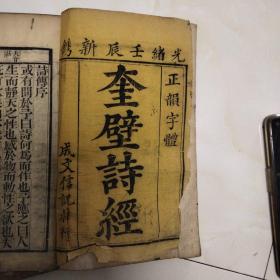 光緒壬辰新鐫
正韻字體
奎壁詩經
成文信記梓行
詩經序
或有問於余曰詩何爲而作也予應之曰人
生而靜天之性也感於物而動性之欲也夫